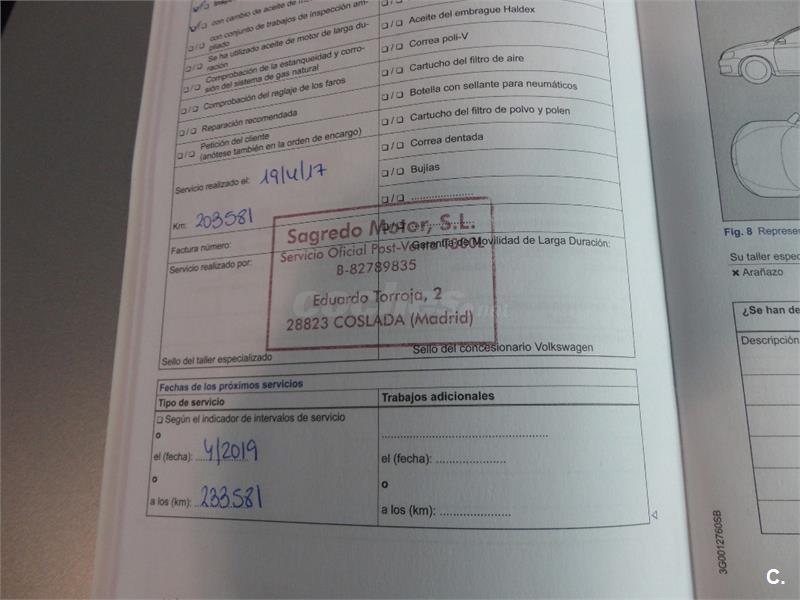 con cambio de aceite de
con conjunto de trabajos de inspección am-
pliado
❏ / ❏ Se ha utilizado aceite de motor de larga du-
ración
❏ / ❏ Comprobación de la estanqueidad y corro-
sión del sistema de gas natural
❏ / ❏ Comprobación del reglaje de los faros
❏ / ❏ Reparación recomendada
❏ / ❏ Petición del cliente
(anótese también en la orden de encargo)
Servicio realizado el: 19/4/17
Km: 203581
Factura número:
Servicio realizado por:
Sello del taller especializado
❏ / ❏ Aceite del embrague Haldex
❏ / ❏ Correa poli-V
❏ / ❏ Cartucho del filtro de aire
❏ / ❏ Botella con sellante para neumáticos
❏ / ❏ Cartucho del filtro de polvo y polen
❏ / ❏ Correa dentada
❏ / ❏ Bujías
❏ / ❏ ....................
Garantía de Movilidad de Larga Duración:
Sello del concesionario Volkswagen
Sagredo Motor, S.L.
Servicio Oficial Post-Venta
B-82789835
Eduardo Torroja, 2
28823 COSLADA (Madrid)
coches.net
Fechas de los próximos servicios
Tipo de servicio
❏ Según el indicador de intervalos de servicio
o
el (fecha): 4/2019
o
a los (km): 233581
Trabajos adicionales
....................
el (fecha): ....................
o
a los (km): ....................
Fig. 8 Represen
Su taller espec
✕ Arañazo
¿Se han de
Descripción
3G0012760SB
C.